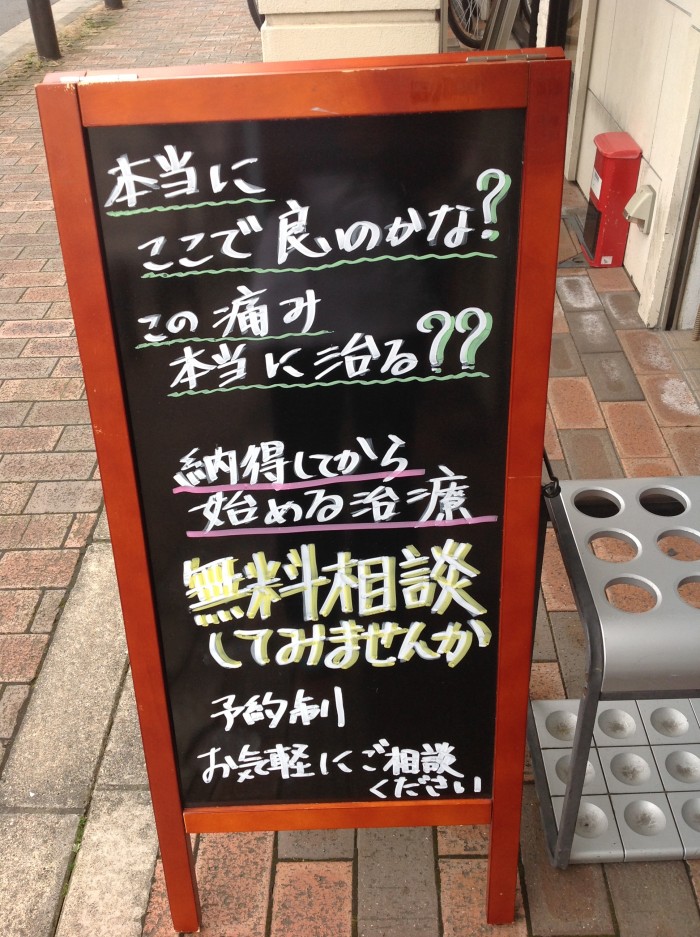 本当に
ここで良いのかな?
この痛み
本当に治る??
納得してから
始める治療
無料相談
してみませんか
予約制
お気軽にご相談
ください